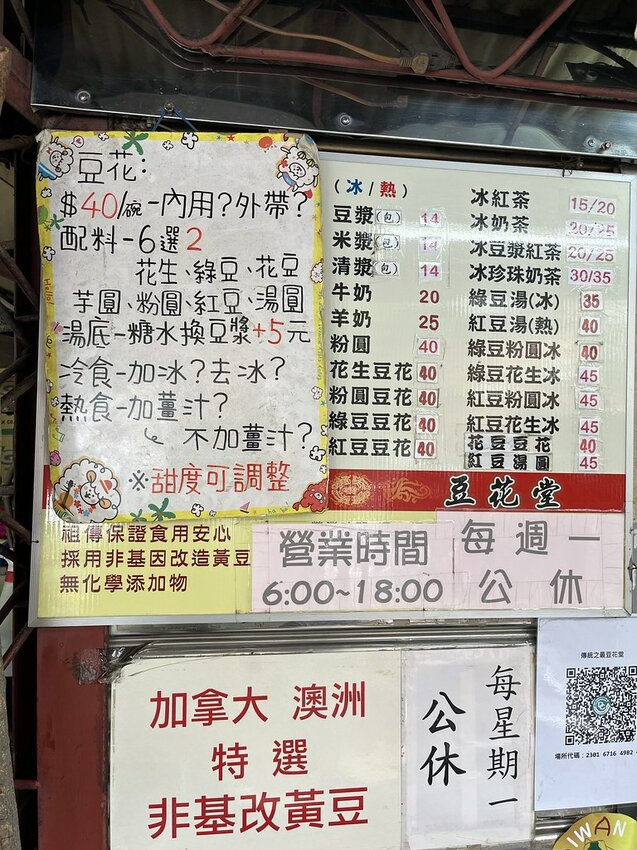 豆花:
$40/碗-內用?外帶?
配料-6選2
花生、綠豆、花豆
芋圓、粉圓、紅豆、湯圓
湯底-糖水換豆漿+5元
冷食-加冰?去冰?
熱食-加薑汁?
不加薑汁?
※甜度可調整
(冰/熱)
豆漿(包) 14
米漿(包) 14
清漿(包) 14
牛奶 20
羊奶 25
粉圓 40
花生豆花 40
粉圓豆花 40
綠豆豆花 40
紅豆豆花 40
冰紅茶 15/20
冰奶茶 20/25
冰豆漿紅茶 20/25
冰珍珠奶茶 30/35
綠豆湯(冰) 35
紅豆湯(熱) 40
綠豆粉圓冰 40
綠豆花生冰 45
紅豆粉圓冰 45
紅豆花生冰 45
花豆豆花 40
紅豆湯圓 45
豆花堂
祖傳保證食用安心
採用非基因改造黃豆
無化學添加物
營業時間
6:00~18:00
每週一
公休
加拿大 澳洲
特選
非基改黃豆
每星期一
公休
傳統之最豆花堂
場所代碼：2301 6716 4982
IWAN